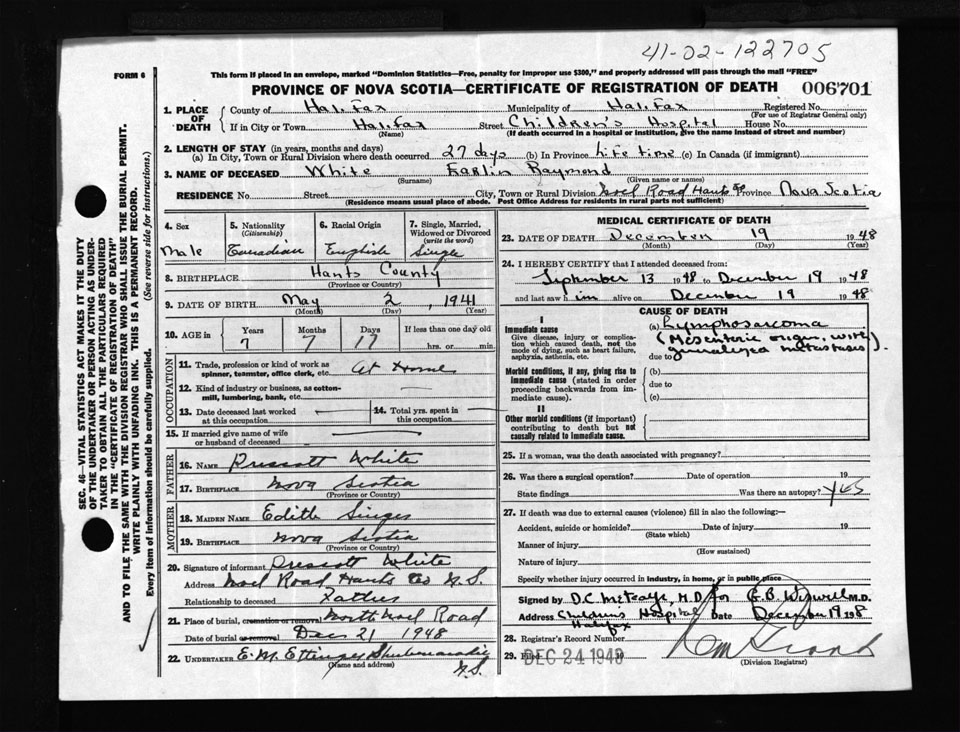 41-02-122705
FORM 6
This form if placed in an envelope, marked "Dominion Statistics—Free, penalty for improper use $300," and properly addressed will pass through the mail "FREE"
PROVINCE OF NOVA SCOTIA—CERTIFICATE OF REGISTRATION OF DEATH 006701
SEC. 46—VITAL STATISTICS ACT MAKES IT THE DUTY
OF THE UNDERTAKER OR PERSON ACTING AS UNDER-
TAKER TO OBTAIN ALL THE PARTICULARS REQUIRED
IN THE "CERTIFICATE OF REGISTRATION OF DEATH"
AND TO FILE THE SAME WITH THE DIVISION REGISTRAR WHO SHALL ISSUE THE BURIAL PERMIT.
WRITE PLAINLY WITH UNFADING INK. THIS IS A PERMANENT RECORD.
Every item of Information should be carefully supplied. (See reverse side for instructions.)
1. PLACE OF DEATH
County of Halifax Municipality of Halifax Registered No.
(For use of Registrar General only)
If in City or Town Halifax Street Children's Hospital House No.
(Name) (If death occurred in a hospital or institution, give the name instead of street and number)
2. LENGTH OF STAY (in years, months and days)
(a) In City, Town or Rural Division where death occurred 27 days (b) In Province Life time (c) In Canada (if immigrant)
3. NAME OF DECEASED White Raymond
(Surname) (Given name or names)
RESIDENCE No. Street City, Town or Rural Division Noel Road Hants Co Province Nova Scotia
(Residence means usual place of abode. Post Office Address for residents in rural parts not sufficient)
4. Sex Male
5. Nationality (Citizenship) Canadian
6. Racial Origin English
7. Single, Married, Widowed or Divorced (write the word) Single
8. BIRTHPLACE Hants County
(Province or Country)
9. DATE OF BIRTH May 2, 1941
(Month) (Day) (Year)
10. AGE in Years Months Days If less than one day old
7 7 17 hrs. or min.
OCCUPATION
11. Trade, profession or kind of work as spinner, teamster, office clerk, etc. At Home
12. Kind of industry or business, as cotton-mill, lumbering, bank, etc. —
13. Date deceased last worked at this occupation —
14. Total yrs. spent in this occupation —
15. If married give name of wife or husband of deceased —
FATHER
16. NAME Prescott White
17. BIRTHPLACE Nova Scotia
(Province or Country)
MOTHER
18. MAIDEN NAME Edith Singer
19. BIRTHPLACE Nova Scotia
(Province or Country)
20. Signature of informant Prescott White
Address Noel Road Hants Co N.S.
Relationship to deceased Father
21. Place of burial, cremation or removal North Noel Road
Date of burial or removal Dec 21 1948
22. UNDERTAKER E. M. Ettinger Shubenacadie
(Name and address) N.S.
MEDICAL CERTIFICATE OF DEATH
23. DATE OF DEATH December 19 1948
(Month) (Day) (Year)
24. I HEREBY CERTIFY that I attended deceased from:
September 13 1948 to December 19 1948
and last saw him alive on December 19 1948
CAUSE OF DEATH
I
Immediate cause
Give disease, injury or complication which caused death, not the mode of dying, such as heart failure, asphyxia, asthenia, etc.
(a) Lymphosarcoma
(Mesenteric origin, with
due to generalized metastases).
Morbid conditions, if any, giving rise to immediate cause (stated in order proceeding backwards from immediate cause).
(b)
due to
(c)
II
Other morbid conditions (if important) contributing to death but not causally related to immediate cause.
25. If a woman, was the death associated with pregnancy?
26. Was there a surgical operation? Date of operation 19
State findings Was there an autopsy? Yes
27. If death was due to external causes (violence) fill in also the following:—
Accident, suicide or homicide? Date of injury 19
(State which)
Manner of injury
(How sustained)
Nature of injury
Specify whether injury occurred in industry, in home, or in public place
Signed by D.C. M.D. for G.B. M.D.
Address Children's Hospital Date December 19 1948
Halifax
28. Registrar's Record Number
29. Filed DEC 24 1948 19
(Division Registrar)